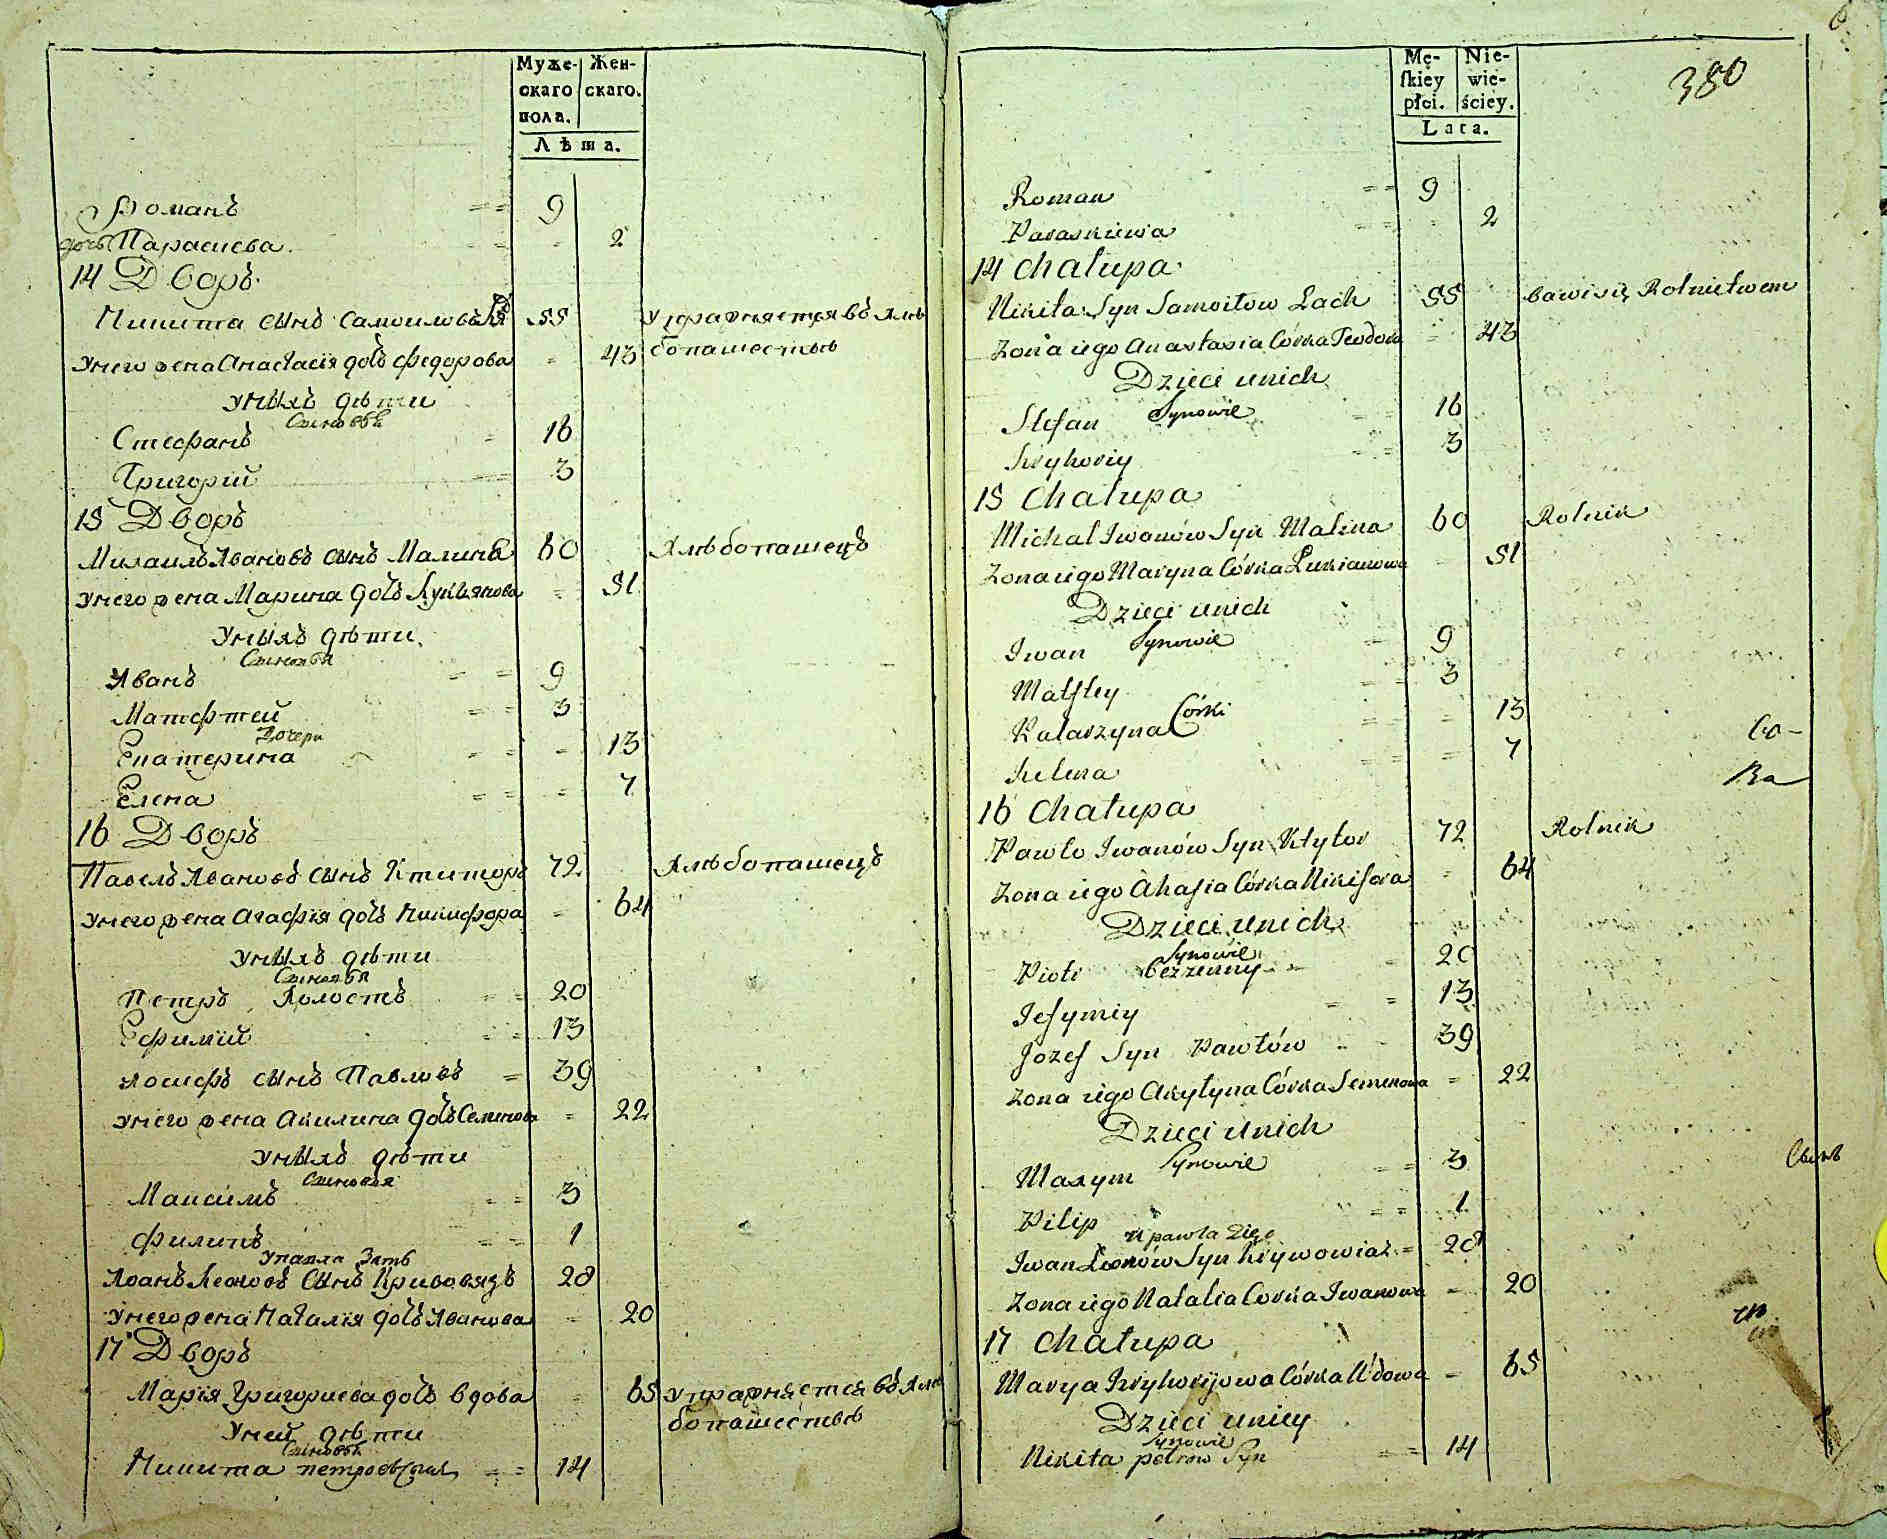 Мужескаго пола.
Женскаго.
Лѣта.
Романъ 9
дочь Парасиева 2
14 Дворъ
Никита сынъ Самоиловъ 55 упражняется въ хлѣ
Унего жена Анастасія дочь Федорова 43 бопашествѣ
Унихъ дѣти
Синовьѣ
Стефанъ 16
Григорій 3
15 Дворъ
Михаилъ Ивановъ сынъ Малина 60 Хлѣбопашецъ
Унего жена Марина дочь Лукьянова 51
Унихъ дѣти
Синовья
Иванъ 9
Матфтей 3
Дочери
Екатерина 13
Елена 7
16 Дворъ
Павелъ Ивановъ сынъ Ктиторъ 72 Хлѣбопашецъ
Унего жена Агафія дочь Никифора 64
Унихъ дѣти
Синовья
Петръ Холостъ 20
Ефимій 13
Иосифъ сынъ Павловъ 39
Унего жена Акилина дочь Семенова 22
Унихъ дѣти
Синовья
Максимъ 3
Филипъ 1
Упавла Зять
Иванъ Леоновъ Сынъ Кривовязъ 28
Унего жена Наталія дочь Иванова 20
17 Дворъ
Марія Григориева дочь вдова 65 упражняется въ хлѣ
Уней дѣти бопашествѣ
Синовьѣ
Никита петровъ Сынъ 14
380
Męſkiey płci.
Niewieściey.
Lata.
Roman 9
Paraskiewia 2
14 Chałupa
Nikita Syn Samoiłow Lach 55 bawi się Rolnictwem
Zona iego Anastasia Córka Teodora 43
Dzieci unich
Synowie
Stefan 16
Hryhoriy 3
15 Chałupa
Michał Iwanów Syn Malina 60 Rolnik
Zona iego Maryna Córka Łukianowa 51
Dzieci unich
Synowie
Iwan 9
Matftey 3
Katarzyna Córki 13
Helena 7
16 Chałupa
Pawło Iwanów Syn Ktytor 72 Rolnik
Zona iego Ahafia Córka Nikifora 64
Dzieci unich
Synowie
Piotr bezzenny 20
Jefymiy 13
Jozef Syn Pawłów 39
Zona iego Akylyna Córka Semenowa 22
Dzieci unich
Synowie
Maxym 3
Pilip 1
u pawła Zięć
Iwan Leonów Syn Krywowiaz 28
Zona iego Natalia Corka Iwanowa 20
17 Chałupa
Marya Hryhoryiowa Córka Wdowa 65
Dzieci uniey
Synowie
Nikita petrow Syn 14